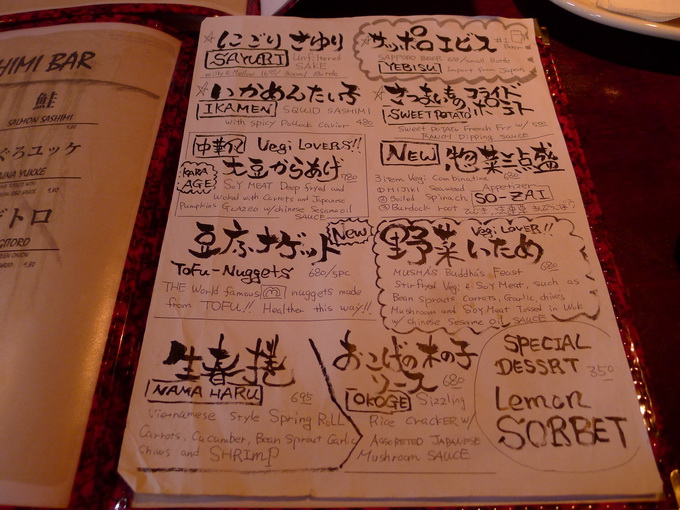 HIMI BAR
鮭
SALMON SASHIMI
ぐろユッケ
YUKKE
トロ
GITORO
にごり さゆり
SAYURI
Unfiltered
SAKE
サッポロ エビス
YEBISU
SAPPORO BEER
Import from Japan
いかめんたい子
IKAMEN
SQUID SASHIMI
with spicy Pollock caviar
さつまいもの フライド
ポテト
SWEET POTATO
Sweet Potato French Fry w/
RANCH Dipping SAUCE
中華風
Vegi LOVERS!!
大豆からあげ
780
KARA
AGE
SOY MEAT Deep fryed and
Woked with Carrots and Japanese
Pumpkins Glazed w/ chinese Sesame oil
SAUCE
NEW
惣菜三点盛
680
3 item Vegi Combination
Appetizer
① HIJIKI Seaweed
② Boiled Spinach
③ Burdock root
SO-ZAI
豆ふナゲット
New
Tofu-Nuggets
680/5pc
THE World famous M nuggets made
from TOFU!! Healthier this way!!
Vegi LOVER!!
野菜いため
680
MUSHA's Buddha's Feast
Stirfryed Vegi & Soy Meat, such as
Bean Sprouts Carrots, Garlic, chives
Mushroom and Soy Meat Tossed in Wok
w/ chinese Sesame oil SAUCE
生春捲
NAMA HARU
695
Vietnamese Style Spring Roll
Carrots, Cucumber, Bean Sprout Garlic
Chives and SHRIMP
おこげの木の子
ソース
680
OKOGE
Sizzling
Rice Cracker w/
Assorted Japanese
Mushroom SAUCE
SPECIAL
DESSRT
350
Lemon
SORBET